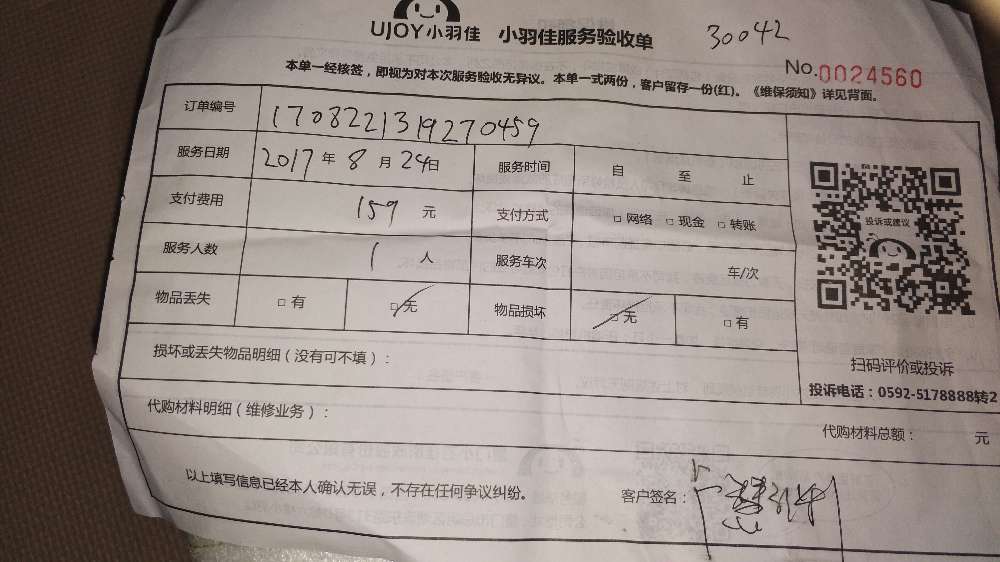 UJOY小羽佳 小羽佳服务验收单 30042
No.0024560
本单一经核签，即视为对本次服务验收无异议。本单一式两份，客户留存一份(红)。《维保须知》详见背面。
订单编号 1708221319270459
服务日期 2017年8月24日 服务时间 自 至 止
支付费用 159元 支付方式 □网络 □现金 □转账
投诉或建议
服务人数 1人 服务车次 车/次
物品丢失 □有 □无 物品损坏 □无 □有
损坏或丢失物品明细（没有可不填）：
扫码评价或投诉
投诉电话：0592-5178888转2
代购材料明细（维修业务）：
代购材料总额： 元
以上填写信息已经本人确认无误，不存在任何争议纠纷。
客户签名：